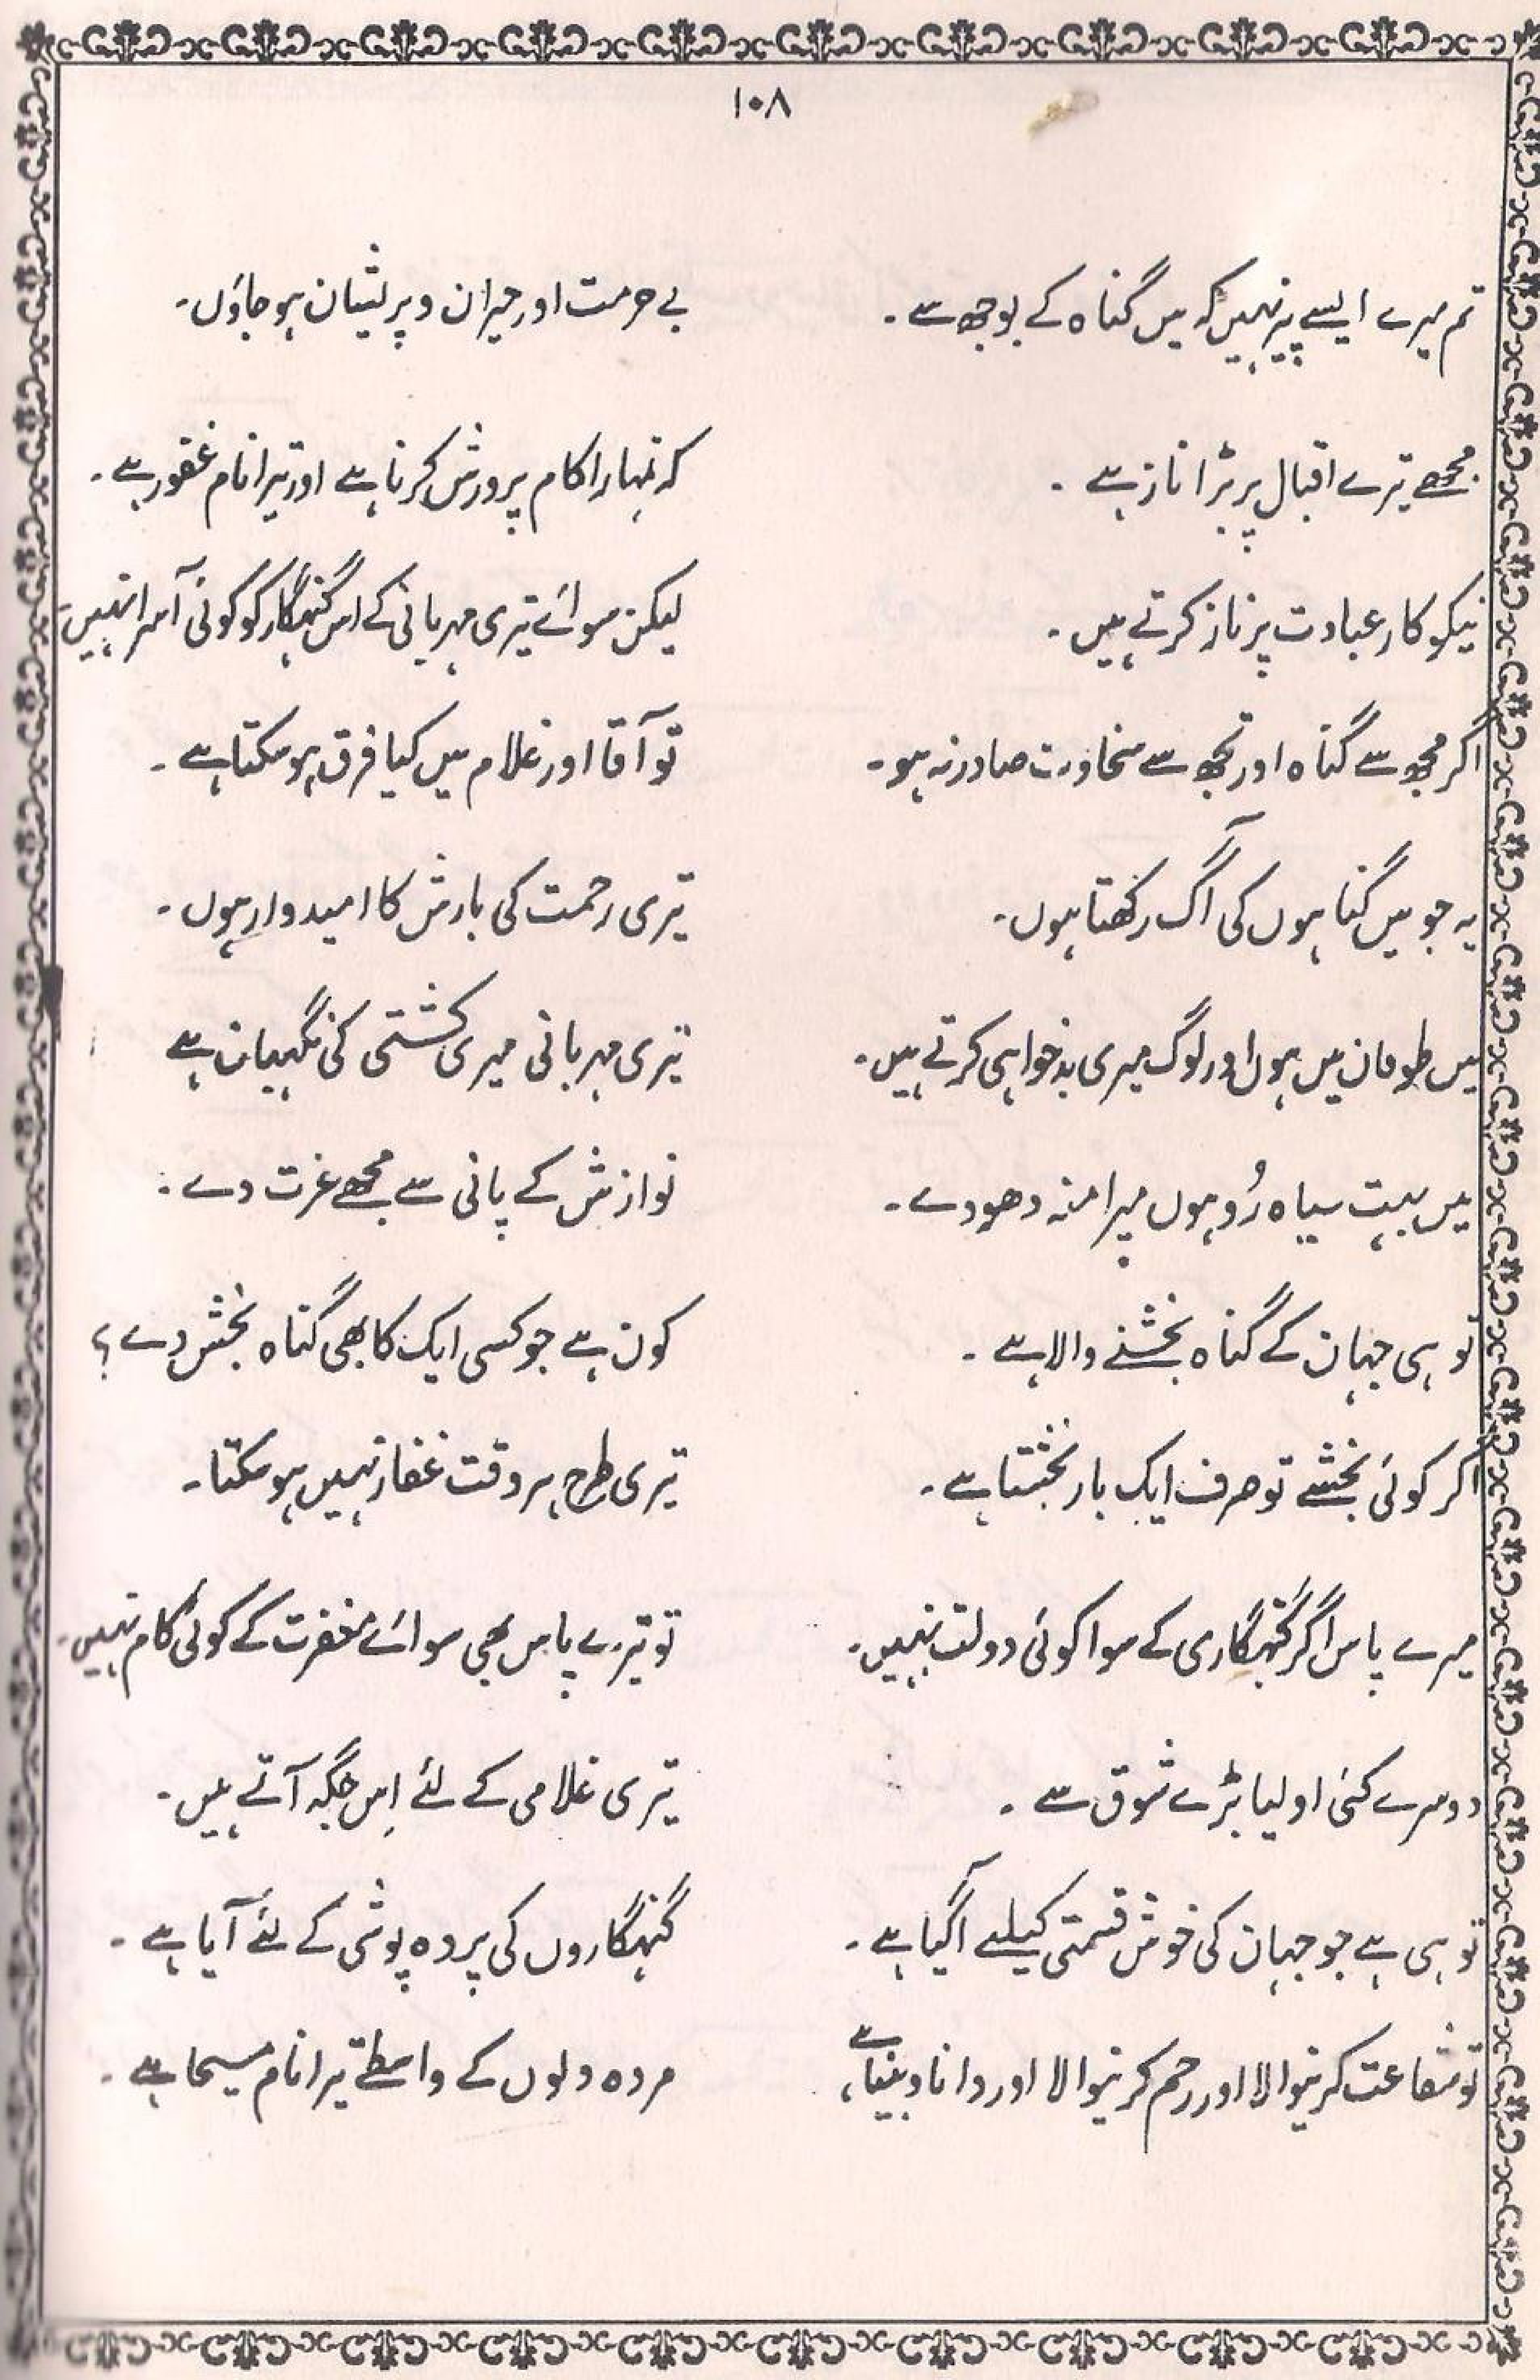 ۱۰۸
تم میرے ایسے پیر نہیں کہ میں گناہ کے بوجھ سے ۔ بے حرمت اور حیران و پریشان ہو جاؤں ۔
مجھے تیرے اقبال پر بڑا ناز ہے ۔ کہ تمہارا کام پرورش کرنا ہے اور تیرا نام غفور ہے ۔
نیکوکار عبادت پر ناز کرتے ہیں ۔ لیکن سوائے تیری مہربانی کے اس گنہگار کو کوئی آسرا نہیں ۔
اگر مجھ سے گناہ اور تجھ سے سخاوت صادر نہ ہو ۔ تو آقا اور غلام میں کیا فرق ہو سکتا ہے ۔
یہ جو میں گناہوں کی آگ رکھتا ہوں ۔ تیری رحمت کی بارش کا امیدوار ہوں ۔
میں طوفان میں ہوں اور لوگ میری بدخواہی کرتے ہیں ۔ تیری مہربانی میری کشتی کی نگہبان ہے
میں بہت سیاہ رُو ہوں میرا منہ دھو دے ۔ نوازش کے پانی سے مجھے عزت دے ۔
تو ہی جہان کے گناہ بخشنے والا ہے ۔ کون ہے جو کسی ایک کا بھی گناہ بخش دے ؟
اگر کوئی بخشے تو صرف ایک بار بخشتا ہے ۔ تیری طرح ہر وقت غفار نہیں ہو سکتا ۔
میرے پاس اگر گنہگاری کے سوا کوئی دولت نہیں ۔ تو تیرے پاس بھی سوائے مغفرت کے کوئی کام نہیں ۔
دوسرے کئی اولیا بڑے شوق سے ۔ تیری غلامی کے لئے اِس جگہ آتے ہیں ۔
تو ہی ہے جو جہان کی خوش قسمتی کیلئے آگیا ہے ۔ گنہگاروں کی پردہ پوشی کے لئے آیا ہے ۔
تو شفاعت کرنیوالا اور رحم کرنیوالا اور دانا و بینا ہے ، مردہ دلوں کے واسطے تیرا نام مسیحا ہے ۔